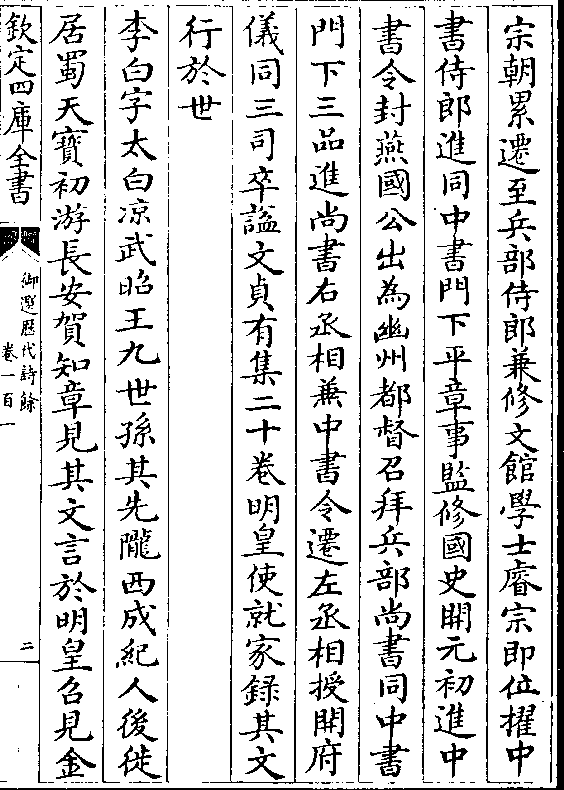 宗朝累遷至兵部侍郎兼修文館學士睿宗即位擢中
書侍郎進同中書門下平章事監修國史開元初進中
書令封燕國公出為幽州都督召拜兵部尚書同中書
門下三品進尚書右丞相兼中書令遷左丞相授開府
儀同三司卒諡文貞有集二十卷明皇使就家録其文
行於世
李白字太白凉武昭王九世孫其先隴西成紀人後徙
居蜀天寶初游長安賀知章見其文言於明皇召見金
欽定四庫全書
御選歷代詩餘
卷一百一
二